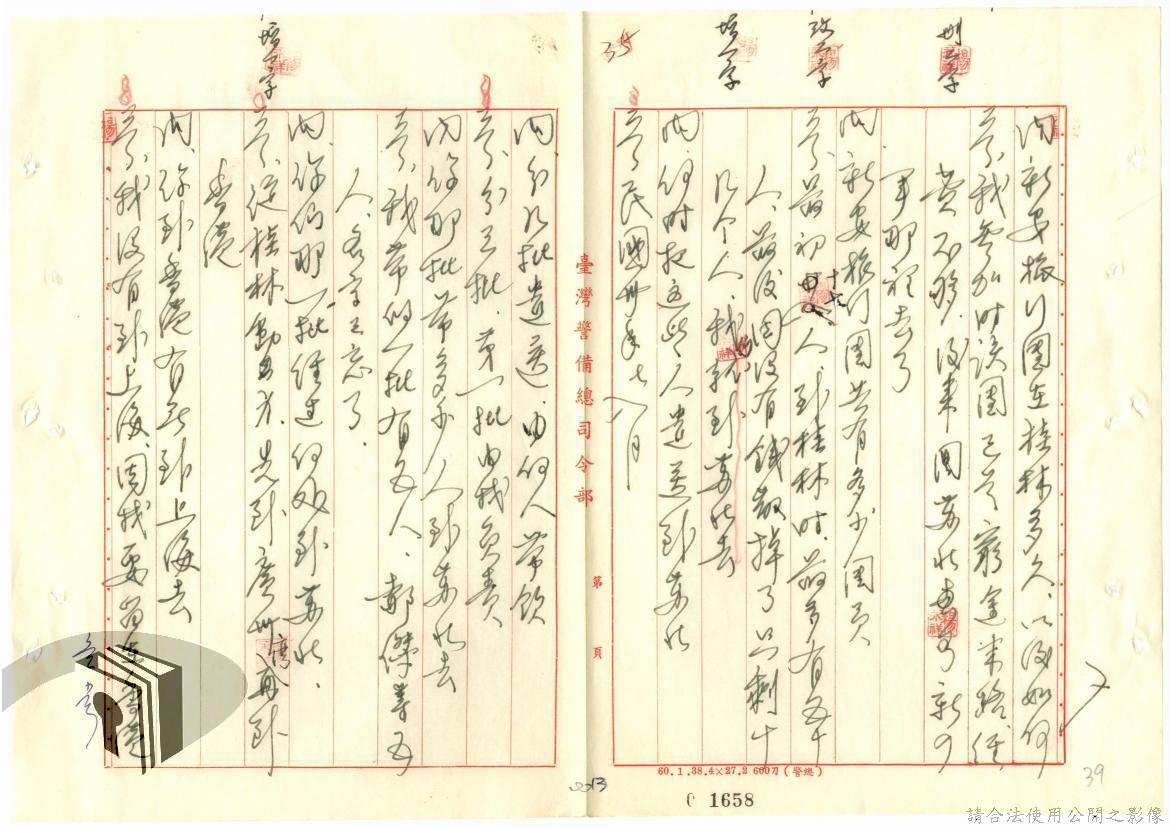 刪三字
改二字
增一字
35
問、新安旅行團在桂林多久、以後如何
答、我參加時該團已是窮途末路、經
費不夠、後來團蘇北
軍那裡去了
問、新安旅行團共有多少團員
答、最初十七人、到桂林時、最多有五十
人、最後因沒有錢散掉了只剩十
幾个人、我就到蘇北去
問、何時把這些人遣送到蘇北
答、民國卅年七八月
臺灣警備總司令部
第 頁
增一字
問、分幾批遣送、由何人帶領
答、分三批、第一批由我負責、
問、你那批帶多少人到蘇北去
答、我帶的一批有五人、鄭傑等五
人、名字已忘了、
問、你們那一批經過何處到蘇北、
答、從桂林動身、先到廣州灣再到
香港
問、你到香港有否到上海去
答、我沒有到上海、因我要留在香港
60.1.38.4×27.2 600刀(警總)
1658
39
請合法使用公開之影像